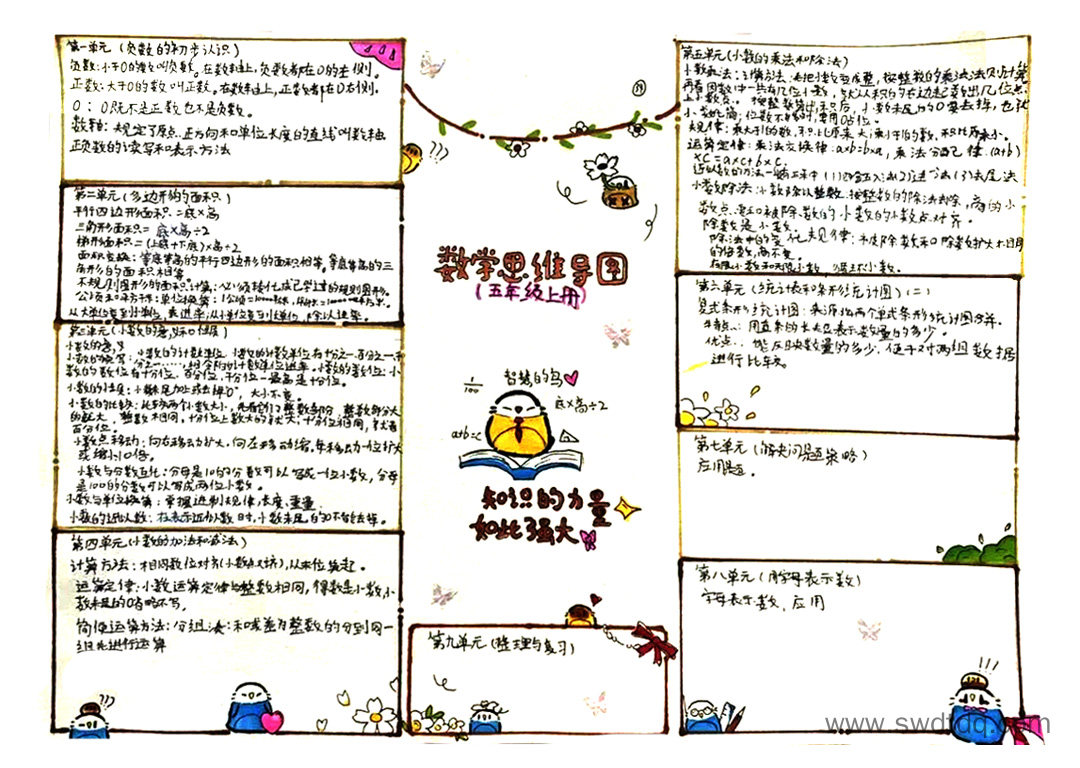 第一单元(负数的初步认识)
负数:小于0的数叫负数。在数轴上,负数都在0的左侧。
正数:大于0的数叫正数。在数轴上,正数都在0右侧。
0:0既不是正数也不是负数。
数轴:规定了原点.正方向和单位长度的直线叫数轴
正负数的读写和表示方法
第二单元(多边形的面积)
平行四边形面积=底×高
三角形面积=底×高÷2
梯形面积=(上底+下底)×高÷2
面积变换:等底等高的平行四边形的面积相等。等底等高的三
角形的面积相等。
不规则图形的面积计算:必须转化成已学过的规则图形。
从大单位变到小单位,乘进率;从小单位变到大单位,除以进率。
第三单元(小数的意义和性质)
小数的意义
小数的性质:小数末尾加上或去掉"0",大小不变。
百分位。
小数点移动:向右移动扩大,向左移动缩小,每移动一位扩大
或缩小10倍。
小数与分数互化:分母是10的分数可以写成一位小数,分母
是100的分数可以写成两位小数。
小数与单位换算:掌握进制规律,长度、重量
小数的近似数:在表示近似数时,小数末尾的0不能去掉。
第四单元(小数的加法和减法)
计算方法:相同数位对齐(小数点对齐),从末位算起。
运算定律:小数运算定律与整数相同,得数是小数,小
数末尾的0省略不写。
简便运算方法:分组法:和或差为整数的分到同一
组先进行运算
???
???
数学思维导图
(五年级上册)
1/100
智慧的鸟
底×高÷2
a+b=c
知识的力量
如此强大
第九单元(整理与复习)
第五单元(小数的乘法和除法)
运算定律:乘法交换律:a×b=b×a,乘法分配律:(a+b)
×c=a×c+b×c.
小数除法:小数除以整数,按整数的除法去除,商的小
数点要和被除数的小数的小数点对齐。
除数是小数。
除法中的变化规律:被除数和除数扩大相同
的倍数,商不变。
有限小数和无限小数 循环小数。
第六单元(统计表和条形统计图)(二)
复式条形统计图:来源于两个单式条形统计图合并。
特点:用直条的长短表示数量的多少。
优点:能反映数量的多少,便于对两组数据
进行比较。
第七单元(解决问题策略)
应用题。
第八单元(用字母表示数)
字母表示数,应用
!!!
www.swdtdq.com